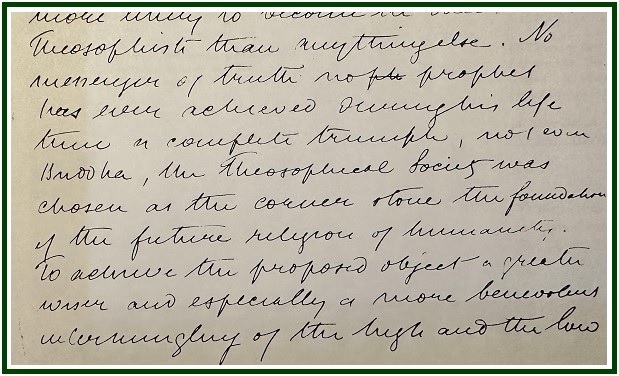 more likely to become the
Theosophists than anything else. No
messenger of truth no prophet
has ever achieved during his life
time a complete triumph, not even
Buddha, the Theosophical Society was
chosen as the corner stone the foundation
of the future religion of humanity.
To achieve the proposed object a greater
wiser and especially a more benevolent
intermingling of the high and the low